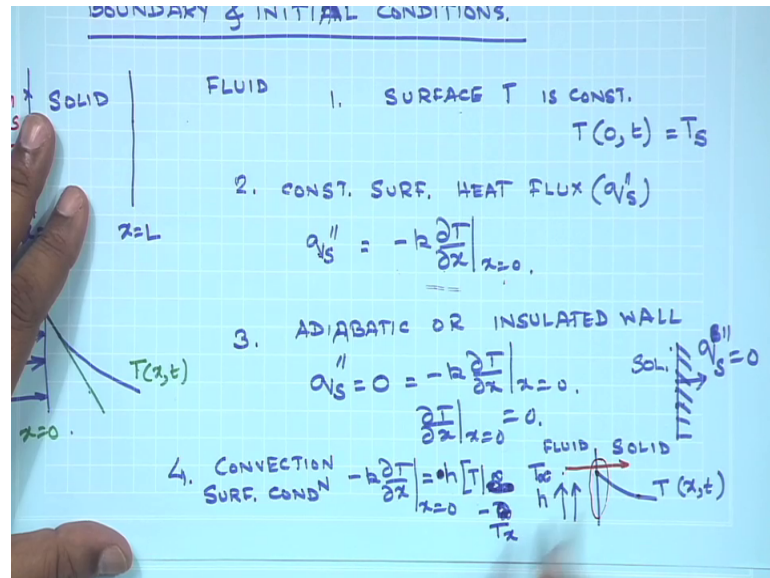 BOUNDARY & INITIAL CONDITIONS.
SOLID
FLUID
x=L
1. SURFACE T IS CONST.
T(0,t) = Ts
2. CONST. SURF. HEAT FLUX (qs'')
qs'' = -k ∂T/∂x|x=0.
3. ADIABATIC OR INSULATED WALL
qs'' = 0 = -k ∂T/∂x|x=0.
∂T/∂x|x=0 = 0.
SOL.
qs'' = 0
T(x,t)
x=0.
4. CONVECTION
SURF. CONDN
-k ∂T/∂x|x=0 = h [T|
- Tx
FLUID SOLID
T∞
h
T(x,t)